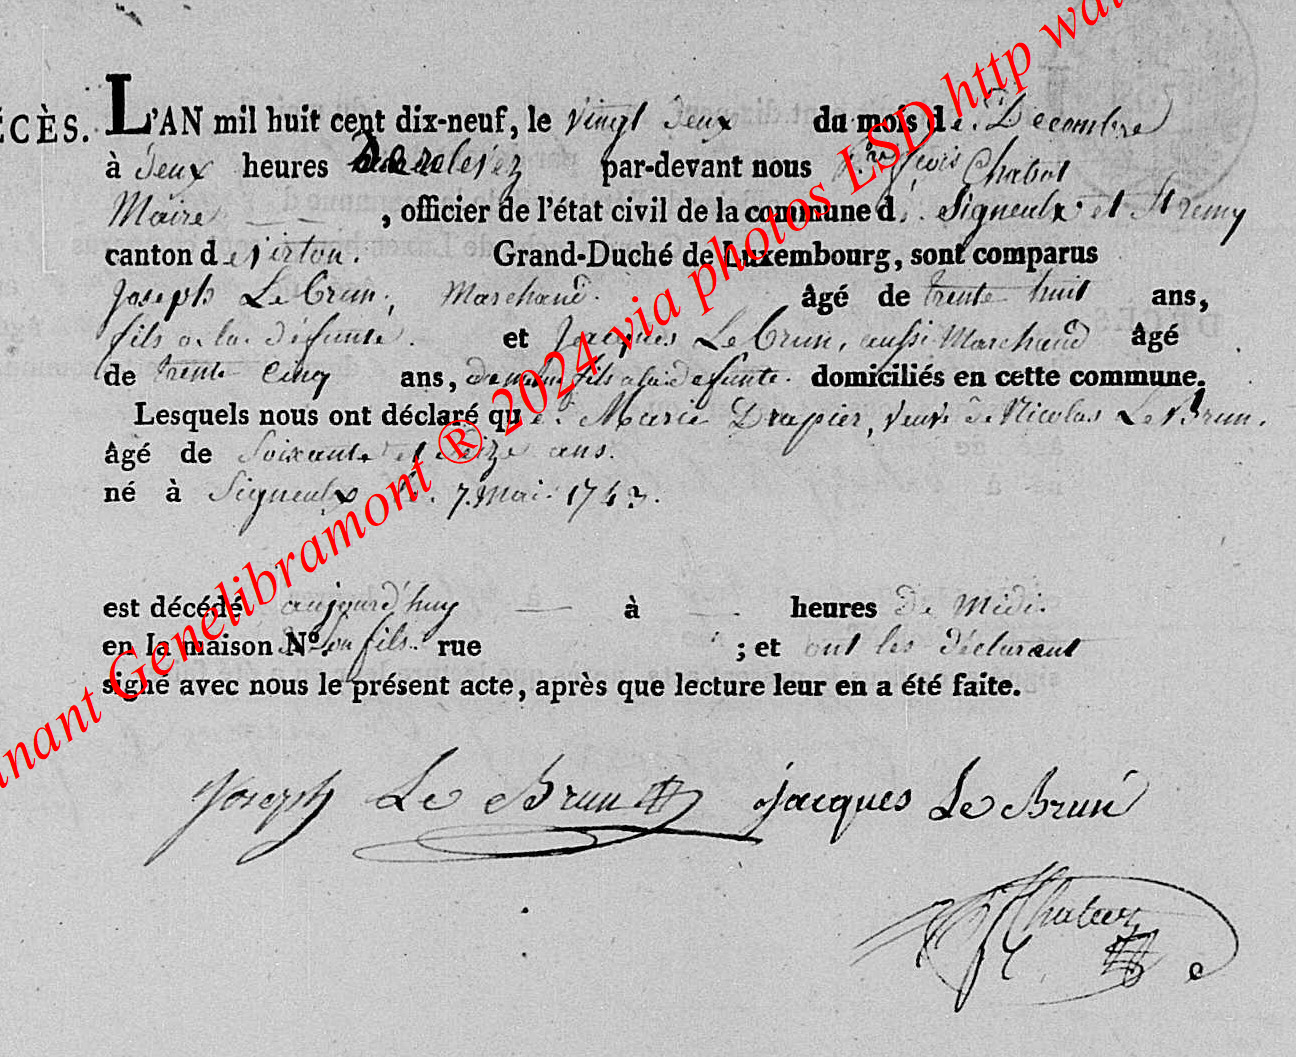 ÉCÈS.
L'AN mil huit cent dix-neuf, le vingt deux du mois de Decembre
à deux heures par-devant nous fois Chabot
Maire , officier de l'état civil de la commune de Signeulx et St remy
canton de virton. Grand-Duché de Luxembourg, sont comparus
Joseph Le Brun, Marchand. âgé de trente huit ans,
fils a la défunte. et Jacques Le Brun, aussi Marchand âgé
de trente Cinq ans, de meme fils a la defunte. domiciliés en cette commune.
Lesquels nous ont déclaré que Marie Drapier, veuve de Nicolas Le Brun.
âgé de Soixante et Seize ans.
né à Signeulx le 7. Mai 1743.
est décédé aujourd'huy à heures de Midi.
en la maison Nº de son fils. rue ; et ont les déclarant
signé avec nous le présent acte, après que lecture leur en a été faite.
Joseph Le Brun Jacques Le Brun
Chabot
nant Genelibramont ® 2024 via photos LSD http wat